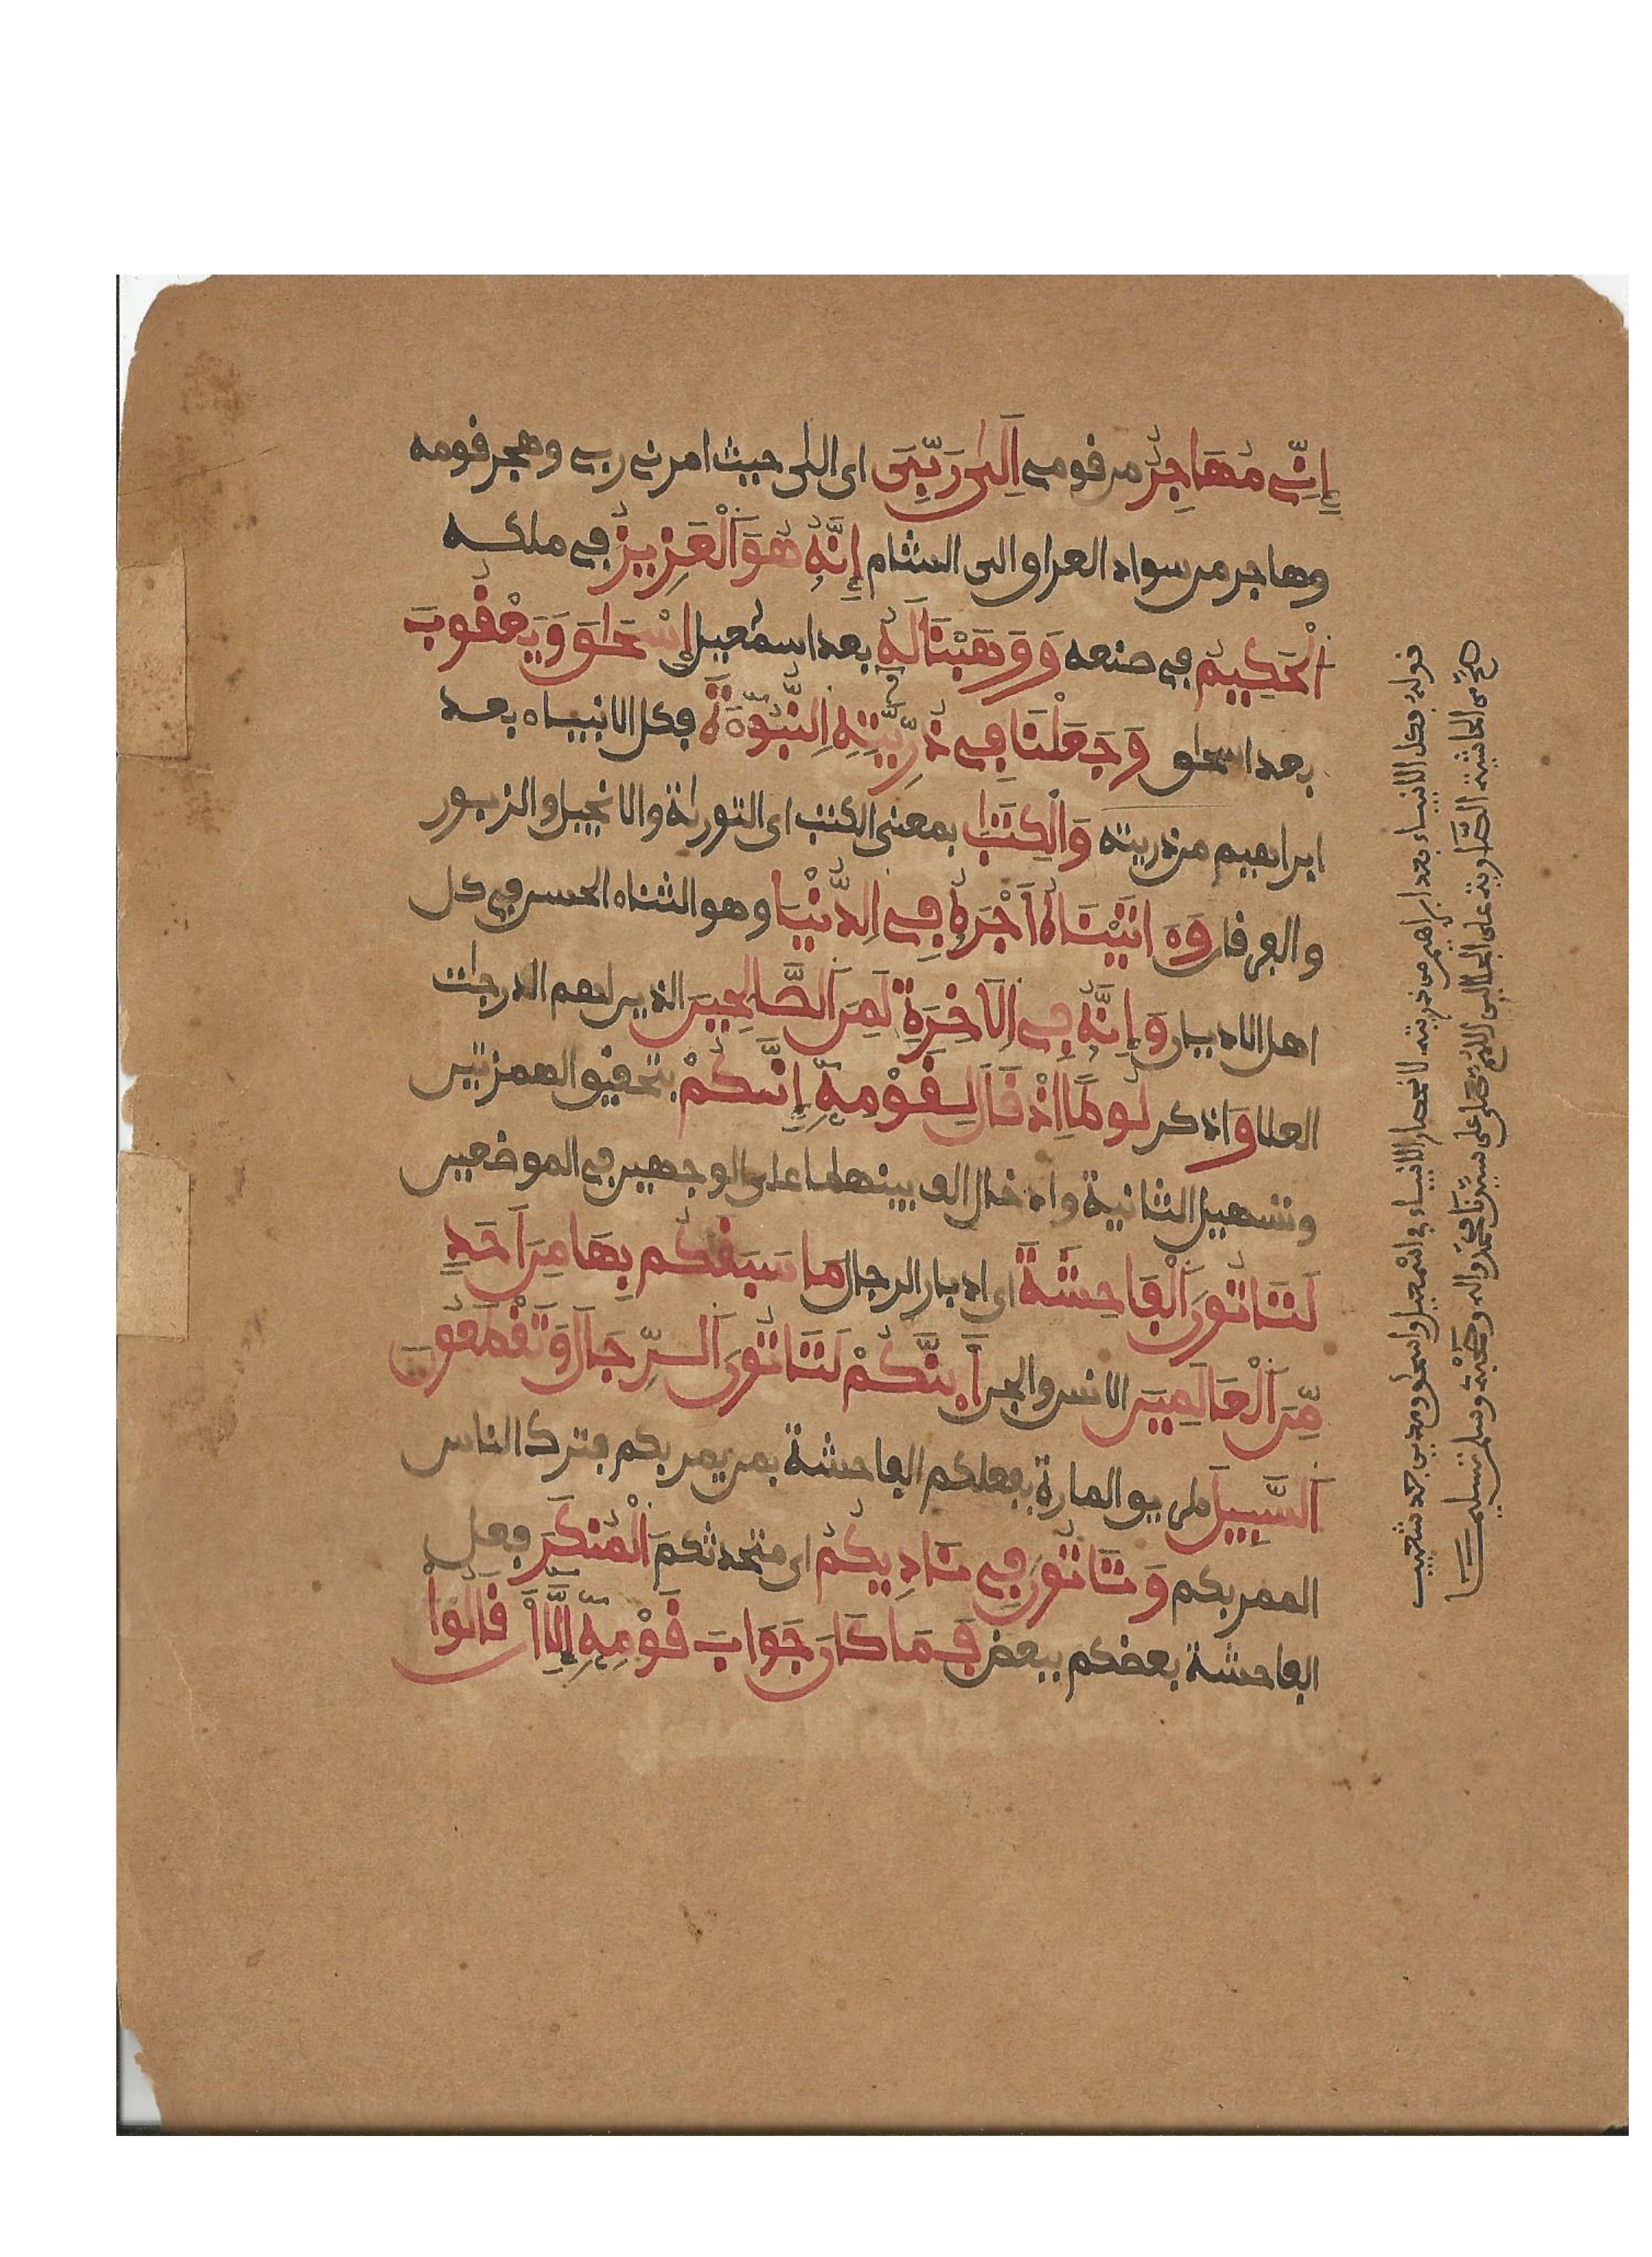 إِنِّي مُهَاجِرٌ من قومي إِلَىٰ رَبِّيَ اى الى حيث امرني ربي وهجر قومه
وهاجر من سواد العراق الى الشام إِنَّهُ هُوَ الْعَزِيزُ في ملكه
الْحَكِيمُ في صنعه وَوَهَبْنَا لَهُ بعد اسمعيل إِسْحَاقَ وَيَعْقُوبَ
بعد اسحاق وَجَعَلْنَا فِي ذُرِّيَّتِهِ النُّبُوءَةَ فكل الانبياء بعد
ابراهيم من ذريته وَالْكِتَابَ بمعنى الكتب اى التورىة والانجيل والزبور
والفرقان وَءَاتَيْنَاهُ أَجْرَهُ فِي الدُّنْيَا وهو الثناء الحسن في كل
اهل الاديان وَإِنَّهُ فِي الَاخِرَةِ لَمِنَ الصَّالِحِينَ الذين لهم الدرجات
العلا وَاذكر لُوطًا اِذْ قَالَ لِقَوْمِهِ إِنَّكُمْ بتحقيق الهمزتين
وتسهيل الثانية وادخال الف بينهما على الوجهين في الموضعين
لَتَاتُونَ الْفَاحِشَةَ اى ادبار الرجال مَا سَبَقَكُم بِهَا مِنَ اَحَدٍ
مِّنَ الْعَالَمِينَ الانس والجن أَئِنَّكُمْ لَتَاتُونَ الرِّجَالَ وَتَقْطَعُونَ
السَّبِيلَ طريق المارة بفعلكم الفاحشة بمن يمر بكم فترك الناس
الممر بكم وَتَاتُونَ فِي نَادِيكُمُ اى متحدثكم الْمُنكَرَ فعل
الفاحشة بعضكم ببعض فَمَا كَانَ جَوَابَ قَوْمِهِ إِلَّا أَن قَالُوا
قوله فكل الانبياء بعد ابراهيم من ذريته لانحصار الانبياء في اسمعيل واسحاق ومدين جد شعيب
صح من الحاشية الصاوية على الجلالين اللهم صل على سيدنا محمد واله وصحبه وسلم تسليما